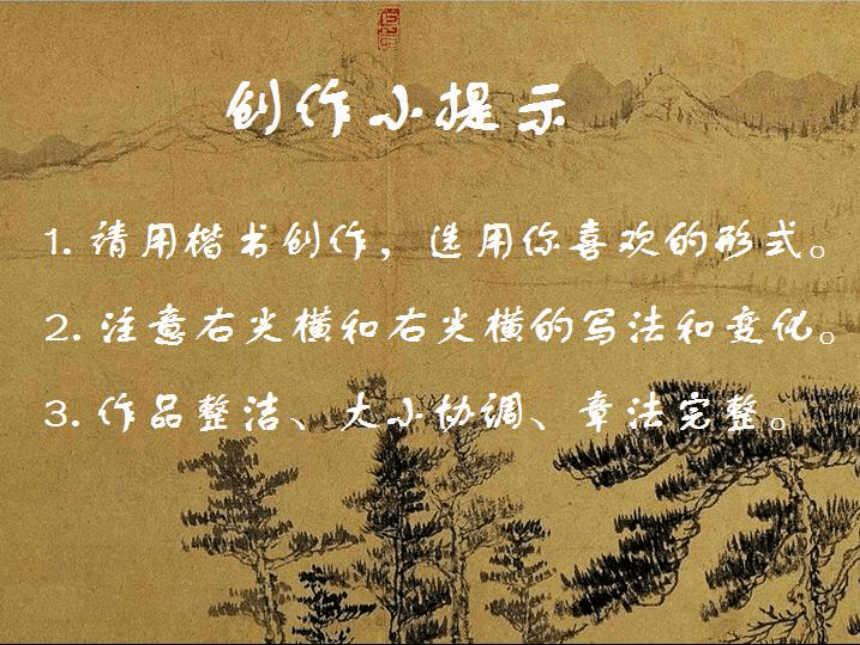 创作小提示
1.请用楷书创作，选用你喜欢的形式。
2.注意右尖横和右尖横的写法和变化。
3.作品整洁、大小协调、章法完整。